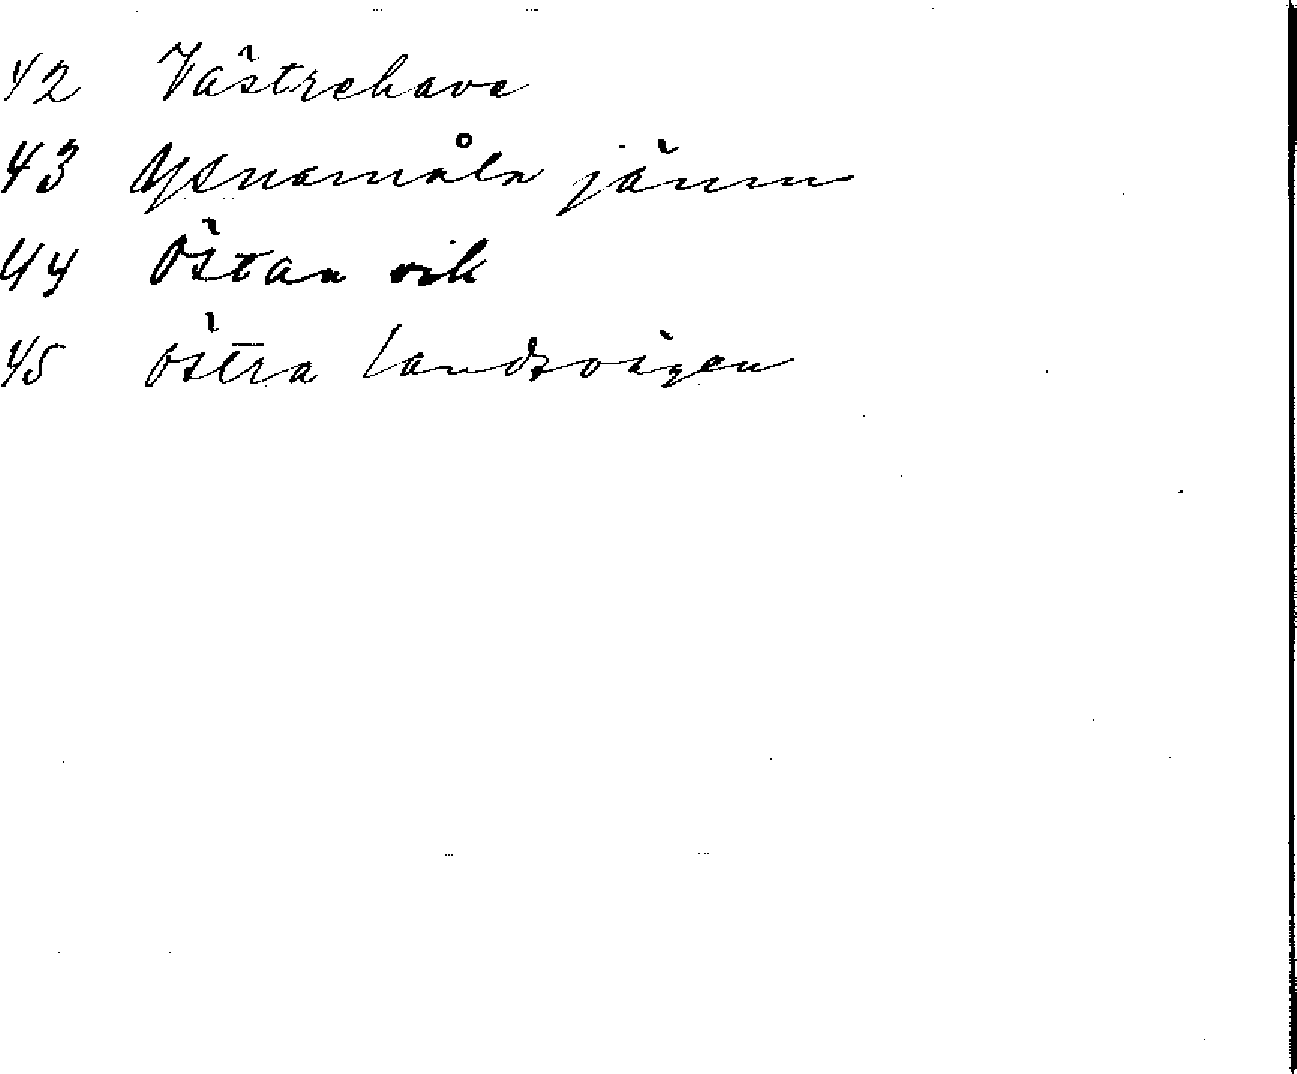 42 Västrehave
43 Ysnamåla jänm
44 Östan vik
45 östra landsvägen